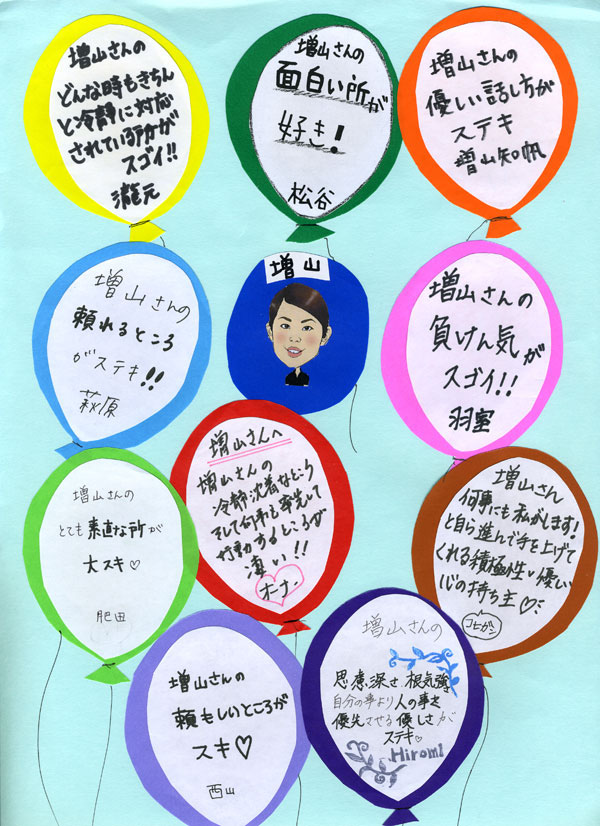 増山さんの
どんな時もきちん
と冷静に対応
されている所が
スゴイ!!
瀧元
増山さんの
面白い所が
好き!
松谷
増山さんの
優しい話し方が
ステキ
増山知帆
増山さんの
頼れるところ
がステキ!!
萩原
増山
増山さんの
負けん気が
スゴイ!!
羽室
増山さんの
とても素直な所が
大スキ♡
肥田
増山さんへ
増山さんの
冷静沈着なところ
そして何事も率先して
行動するところが
凄い!!
オーナー
増山さん
何事にも私がします!
と自ら進んで手を上げて
くれる積極性・優しい
心の持ち主♡
コヒガシ
増山さんの
頼もしいところが
スキ♡
西山
増山さんの
思慮深さ 根気強
自分の事より人の事を
優先させる優しさが
ステキ♡
Hiromi